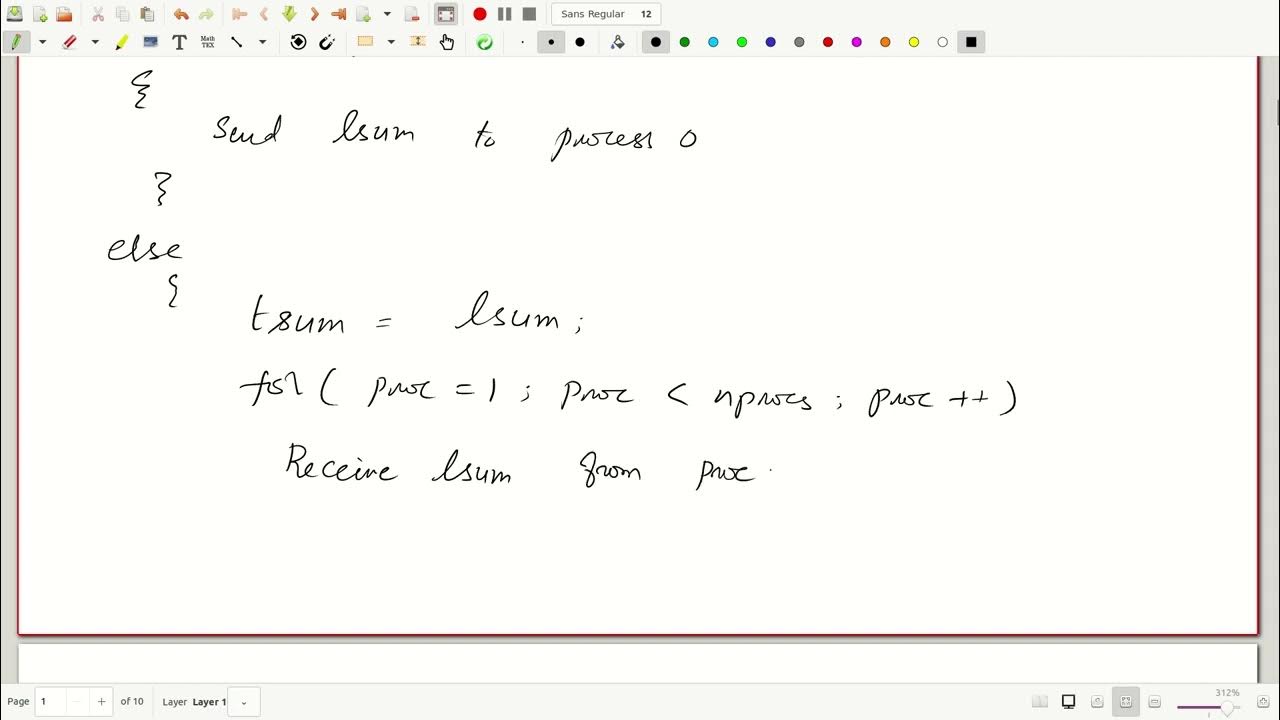 Sans Regular 12
Math
TEX
{
Send lsum to process 0
}
else
{
tsum = lsum;
for( proc = 1 ; proc < nprocs ; proc ++ )
Receive lsum from proc.
Page 1 of 10 Layer Layer 1
312%